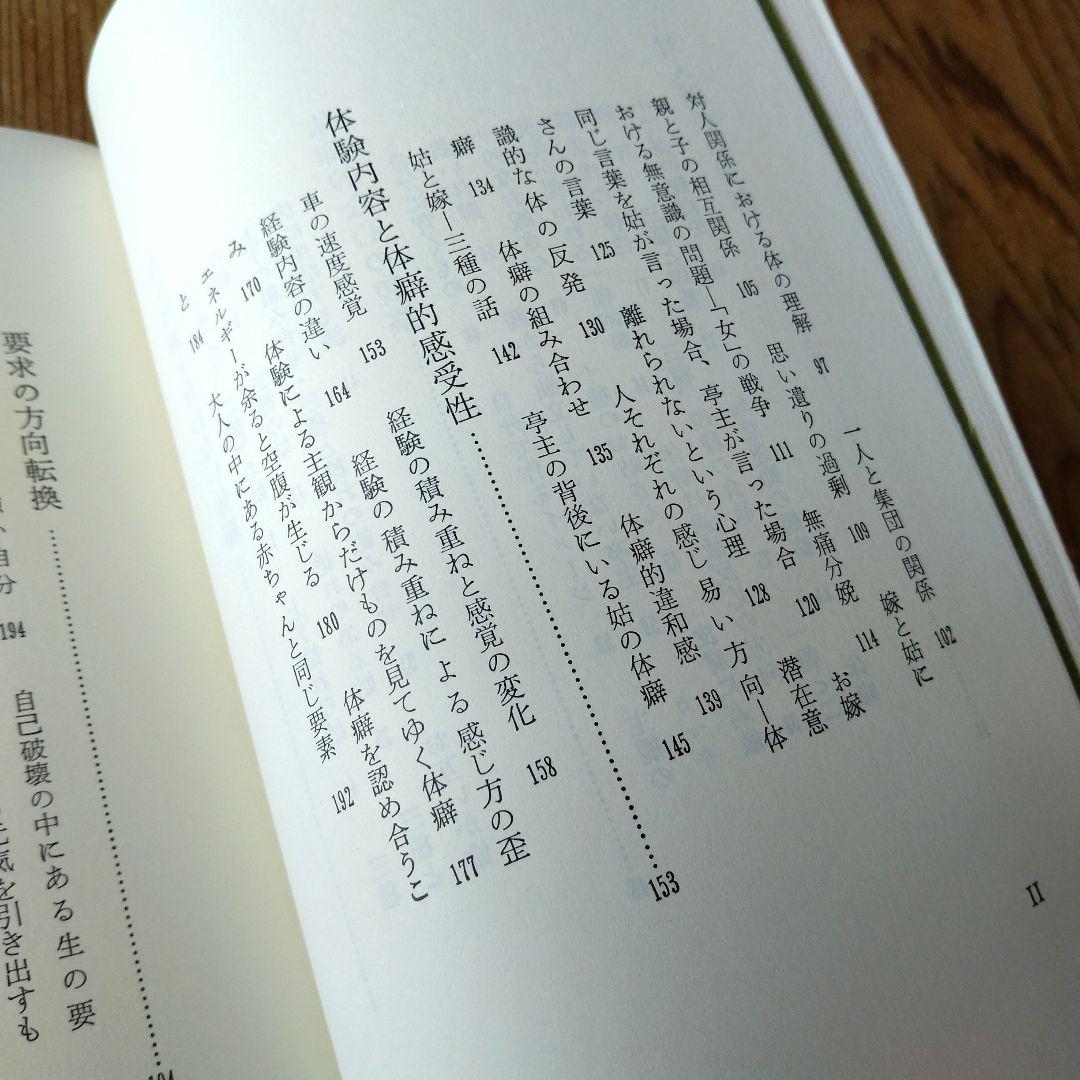 対人関係における体の理解 97 一人と集団の関係 102
親と子の相互関係 105 思い遣りの過剰 109 嫁と姑に
おける無意識の問題―「女」の戦争 111 無痛分娩 114
同じ言葉を姑が言った場合、亭主が言った場合 120 お嫁
さんの言葉 125 離れられないという心理 128 潜在意
識的な体の反発 130 人それぞれの感じ易い方向―体
癖 134 体癖の組み合わせ 135 体癖的違和感 139
姑と嫁―三種の話 142 亭主の背後にいる姑の体癖 145
体験内容と体癖的感受性……………………………153
車の速度感覚 153 経験の積み重ねと感覚の変化 158
経験内容の違い 164 経験の積み重ねによる感じ方の歪
み 170 体験による主観からだけものを見てゆく体癖 177
エネルギーが余ると空腹が生じる 180 体癖を認め合うこ
と 184 大人の中にある赤ちゃんと同じ要素 192
II
要求の方向転換……………………………
自分 194 自己破壊の中にある生の要
気を引き出すも